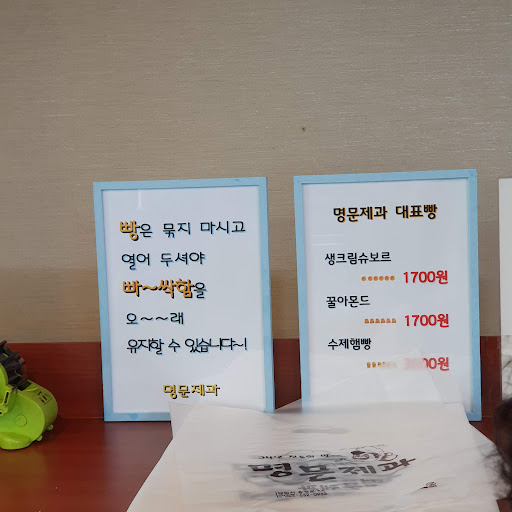 빵은 묶지 마시고
열어 두셔야
빠~싹함을
오~~래
유지할 수 있습니다~!
명문제과
명문제과 대표빵
생크림슈보르
1700원
꿀아몬드
1700원
수제햄빵
명문제과